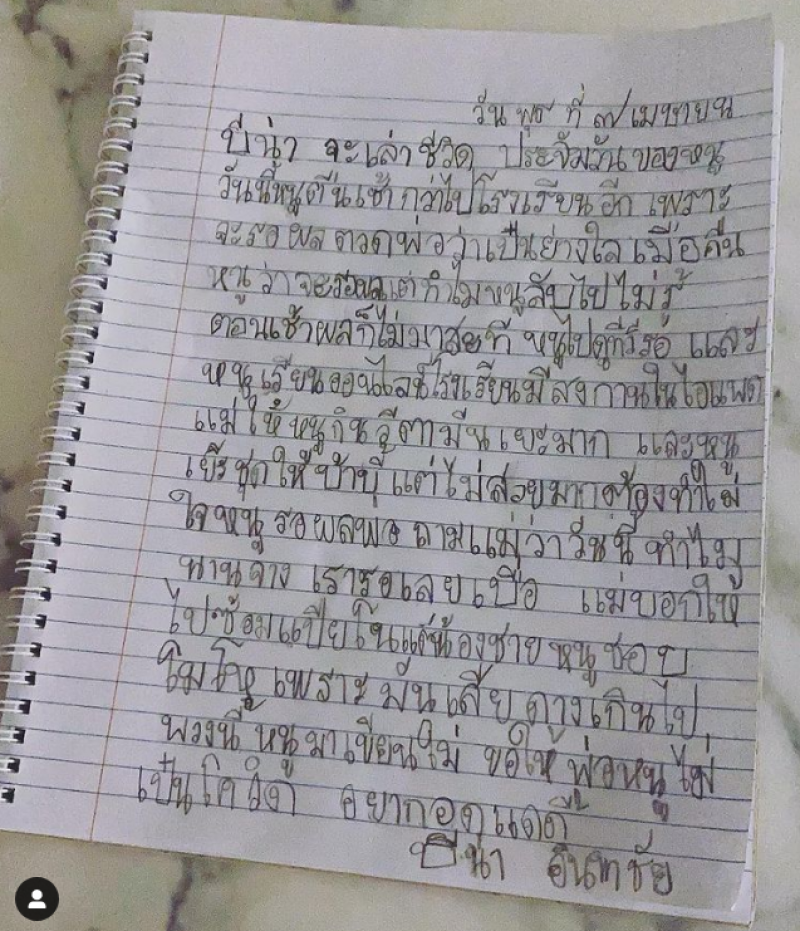 วันพุธ ที่ ๗ เมษายน
บีน่า จะเล่าชีวิต ประจำวันของหนู
วันนี้หนูตื่นเช้ากว่าไปโรงเรียนอีก เพราะ
จะรอผลตวดพ่อว่าเป็นย่างใล เมื่อคืน
หนูว่าจะรอผลแต่ทำไมหนูลับไปไม่รู้
ตอนเช้าผลก็ไม่มาสะที หนูไปดูทีวีรอ และ
หนูเรียนออนไลน์โรงเรียนมีสงกานในไอแพด
แม่ให้หนูกินวีตามีนเยะมาก และหนู
เย็บชุดให้บ้าบี้ แต่ไม่สวยมากต้องทำไม่
ใจหนูรอผลพอ ถามแม่ว่าวันนี้ ทำไม
นานจาง เรารอเลยเบื่อ แม่บอกให้
ไปซ้อมเปียโนแต่น้องชายหนูชอบ
โมโหเพราะมันเสียดางเกินไป
พวงนี้หนูมาเขียนใม่ ขอให้พ่อหนูไม่
เป็นโควิด อยากอดแดดี้
บีน่า อินทชัย